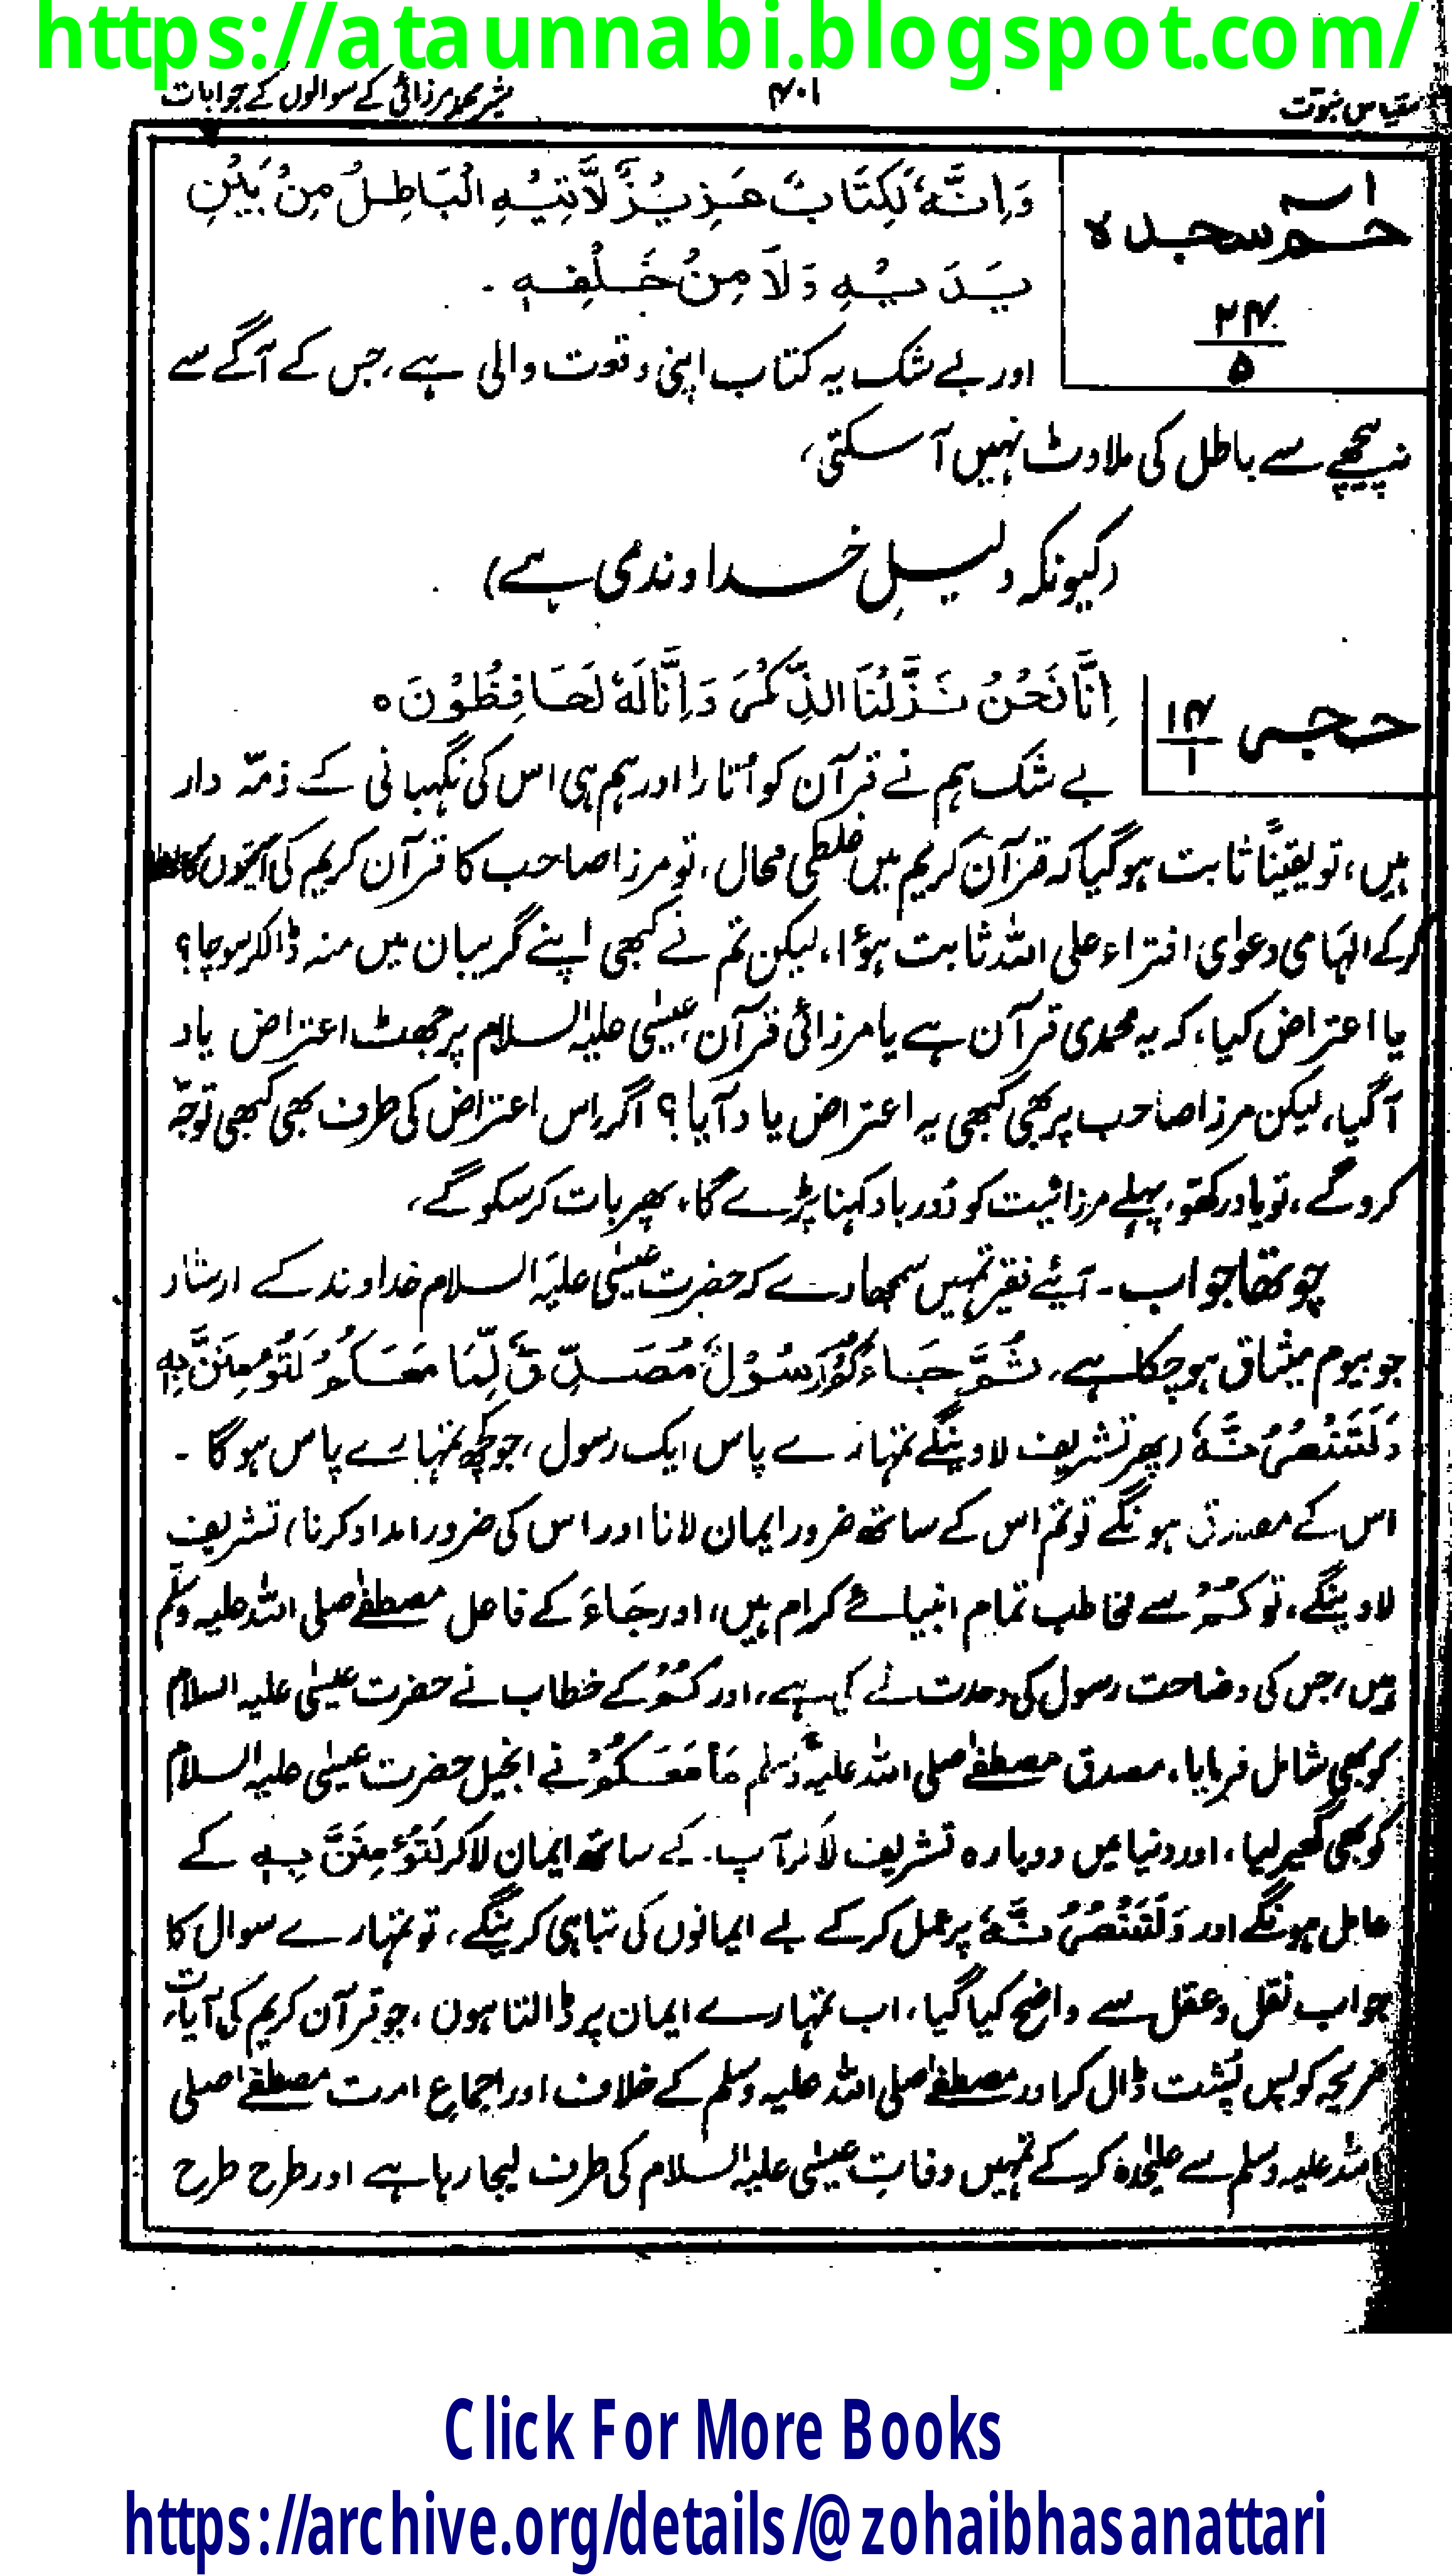 https://ataunnabi.blogspot.com/
مقیاس نبوت
۴۰۱
بشیر محمد مرزائی کے سوالوں کے جوابات
حٰم سجدہ
۲۴
۵
وَاِنَّهٗ لَكِتَابٌ عَزِيْزٌ لَّا يَاْتِيْهِ الْبَاطِلُ مِنْ بَيْنِ
يَدَيْهِ وَلَا مِنْ خَلْفِهٖ ۔
اور بے شک یہ کتاب اپنی وقعت والی ہے، جس کے آگے سے
نہ پیچھے سے باطل کی ملاوٹ نہیں آ سکتی،
(کیونکہ دلیلِ خداوندی ہے)
حجر
۱۴
۱
اِنَّا نَحْنُ نَزَّلْنَا الذِّكْرَ وَاِنَّا لَهٗ لَحَافِظُوْنَ ہ
بے شک ہم نے قرآن کو اُتارا اور ہم ہی اس کی نگہبانی کے ذمّہ دار
ہیں، تو یقیناً ثابت ہو گیا کہ قرآن کریم میں غلطی محال، تو مرزا صاحب کا قرآن کریم کی آیتوں کا
کر کے الہامی دعوٰی افتراء علی اللہ ثابت ہؤا، لیکن تم نے کبھی اپنے گریبان میں منہ ڈالکر سوچا؟
یا اعتراض کیا، کہ یہ محمدی قرآن ہے یا مرزائی قرآن، عیسٰی علیہ السلام پر جھٹ اعتراض یاد
آگیا، لیکن مرزا صاحب پر بھی کبھی یہ اعتراض یاد آیا؟ اگر اس اعتراض کی طرف بھی کبھی توجّہ
کرو گے، تو یاد رکھو، پہلے مرزائیت کو دُور باد کہنا پڑے گا، پھر بات کر سکو گے،
چوتھا جواب ۔ آئیے فقیر تمہیں سمجھا دے کہ حضرت عیسٰی علیہ السلام خداوند کے ارشاد
جو بیوم میثاق ہو چکا ہے، ثُمَّ جَاءَكُمْ رَسُوْلٌ مُّصَدِّقٌ لِّمَا مَعَكُمْ لَتُؤْمِنُنَّ بِهٖ
وَلَتَنْصُرُنَّهٗ (پھر تشریف لاوینگے تمہارے پاس ایک رسول، جو کچھ تمہارے پاس ہو گا ۔
اس کے مصدق ہونگے تو تم اس کے ساتھ ضرور ایمان لانا اور اس کی ضرور امداد کرنا) تشریف
لاوینگے، تو كُمْ سے مخاطب تمام انبیائے کرام ہیں، اور جَاءَ کے فاعل مصطفٰے صلی اللہ علیہ وسلم
ہیں، جس کی وضاحت رسول کی وحدت نے کی ہے، اور كُمْ کے خطاب نے حضرت عیسٰی علیہ السلام
کو بھی شامل فرمایا، مصدق مصطفٰے صلی اللہ علیہ وسلم مَا مَعَكُمْ نے انجیل حضرت عیسٰی علیہ السلام
کو بھی گھیر لیا، اور دنیا میں دوبارہ تشریف لا کر آپ کے ساتھ ایمان لا کر لَتُؤْمِنُنَّ بِهٖ کے
عامل ہونگے اور وَلَتَنْصُرُنَّهٗ پر عمل کر کے بے ایمانوں کی تباہی کرینگے، تو تمہارے سوال کا
جواب نقل و عقل سے واضح کیا گیا، اب تمہارے ایمان پر ڈالتا ہوں، جو قرآن کریم کی آیات
صریحہ کو پس پُشت ڈال کر اور مصطفٰے صلی اللہ علیہ وسلم کے خلاف اور اجماع امت مصطفٰے صلی
اللہ علیہ وسلم سے علیٰحدہ کر کے تمہیں وفاتِ عیسٰی علیہ السلام کی طرف لیجا رہا ہے اور طرح طرح
Click For More Books
https://archive.org/details/@zohaibhasanattari